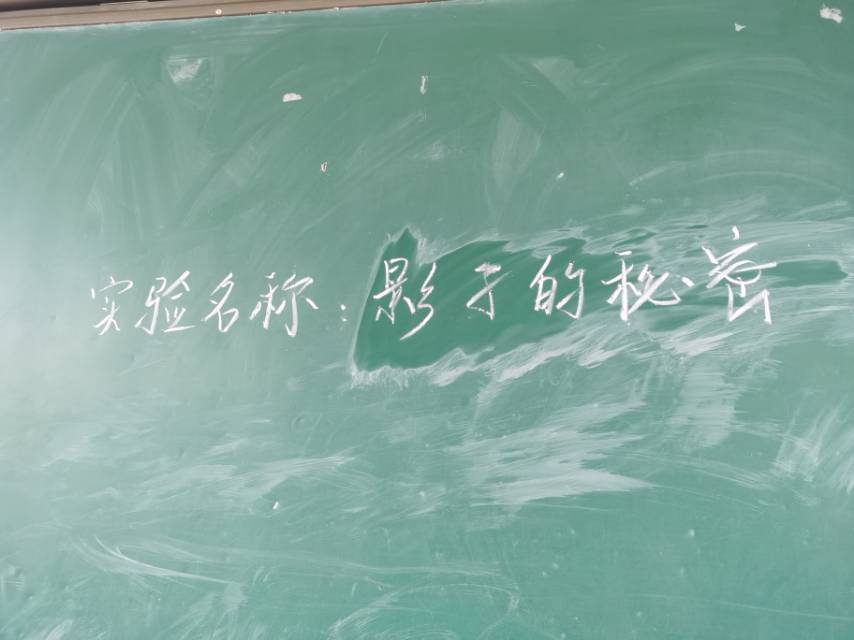 实验名称：影子的秘密